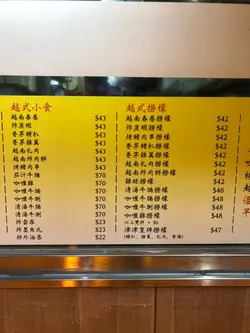 越式小食
越南春卷 $43
炸蔗蝦 $43
香茅豬扒 $43
香茅雞翼 $43
越南扎肉 $43
越南炸肉餅 $43
烤豬肉串 $43
茄汁牛腩 $70
咖喱雞 $70
咖喱牛腩 $70
咖喱牛脷 $70
清湯牛腩 $70
清湯牛脷 $70
炸雲吞 $23
炸墨魚丸 $23
郊外油菜 $22
越式撈檬
越南春卷撈檬 $42
炸蔗蝦撈檬 $42
烤豬肉串撈檬 $42
香茅豬扒撈檬 $42
香茅雞翼撈檬 $42
越南扎肉撈檬 $42
越南炸肉餅撈檬 $42
雞絲撈檬 $42
清湯牛腩撈檬 $42
咖喱牛腩撈檬 $42
咖喱牛脷撈檬 $42
咖喱雞撈檬 $42
以上雙拼 + $6
津津皇牌撈檬 $47
(豬扒、雞翼、扎肉、春卷)